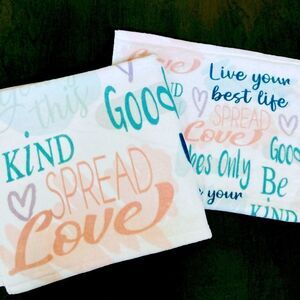 this
GOOD
KiND
SPREAD
Love
Live your
best life
SPREAD
Love
GOOD
Only
Be
KiND
your